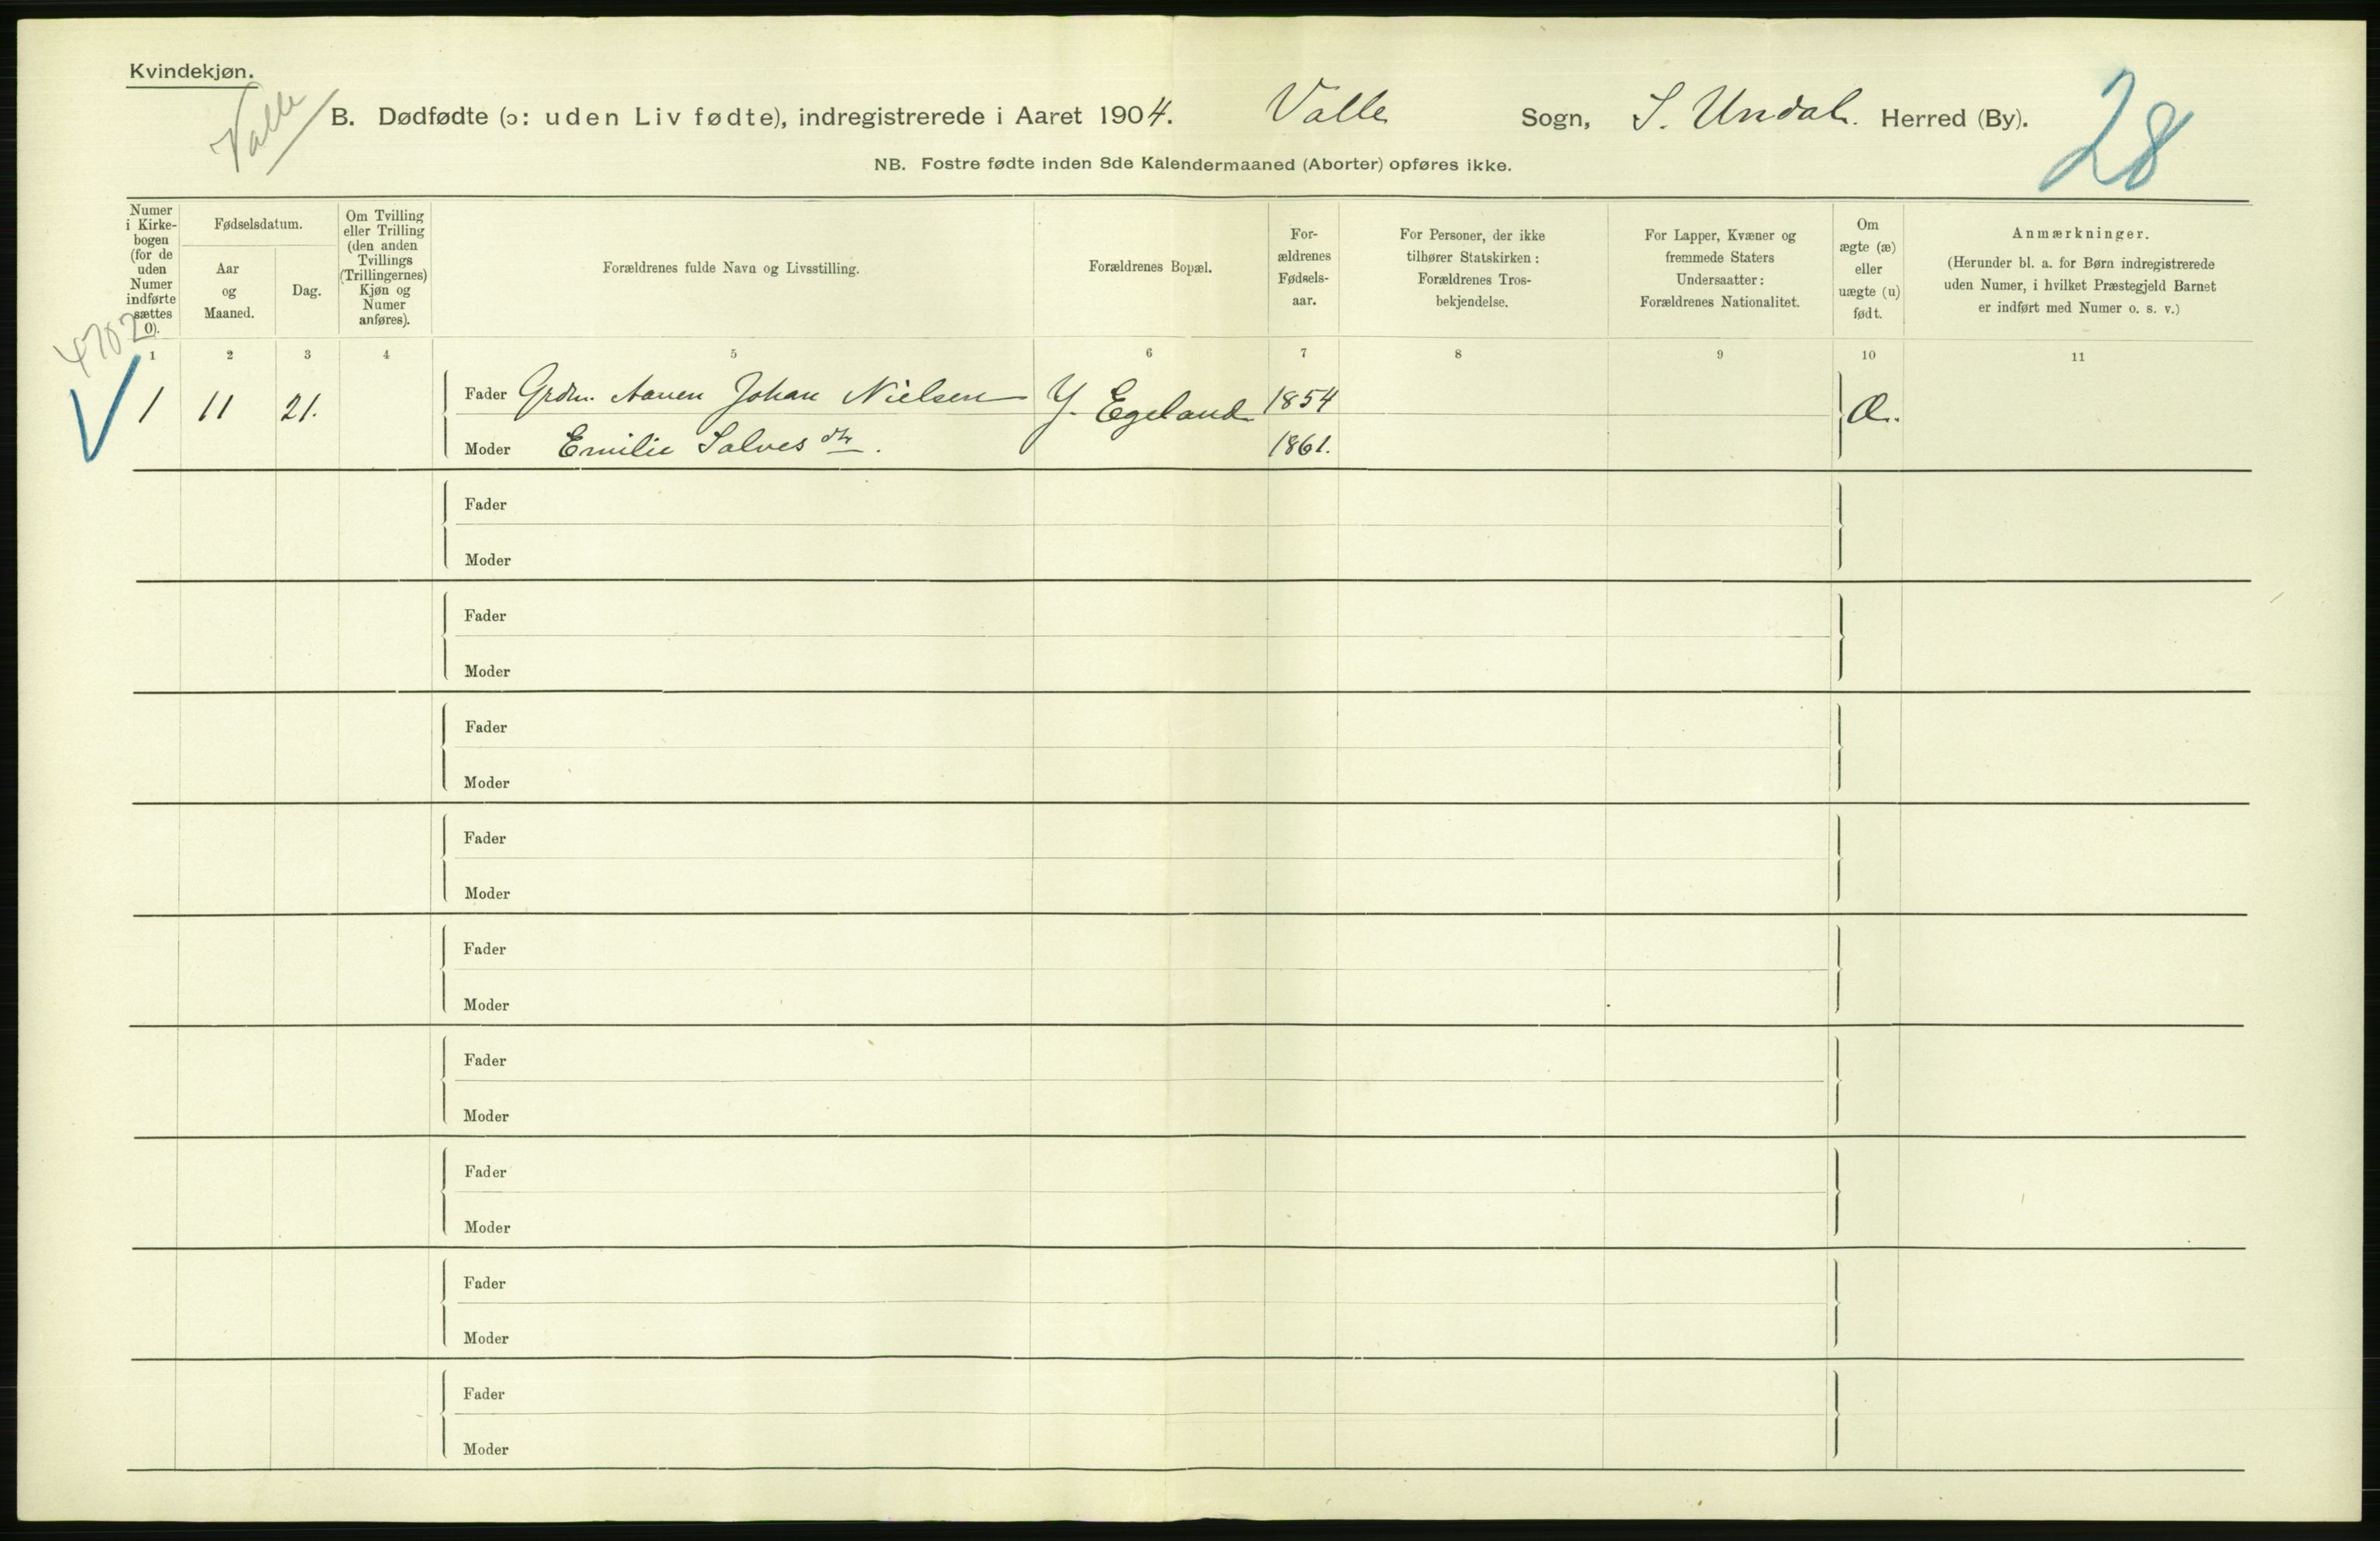 Kvindekjøn.
Valle
B. Dødfødte (ɔ: uden Liv fødte), indregistrerede i Aaret 1904. Valle Sogn, S. Undal. Herred (By).
28
NB. Fostre fødte inden 8de Kalendermaaned (Aborter) opføres ikke.
Numer
i Kirke-
bogen
(for de
uden
Numer
indførte
sættes
0).
Fødselsdatum.
Aar
og
Maaned.
Dag.
Om Tvilling
eller Trilling
(den anden
Tvillings
(Trillingernes)
Kjøn og
Numer
anføres).
Forældrenes fulde Navn og Livsstilling.
Forældrenes Bopæl.
For-
ældrenes
Fødsels-
aar.
For Personer, der ikke
tilhører Statskirken:
Forældrenes Tros-
bekjendelse.
For Lapper, Kvæner og
fremmede Staters
Undersaatter:
Forældrenes Nationalitet.
Om
ægte (æ)
eller
uægte (u)
født.
Anmærkninger.
(Herunder bl. a. for Børn indregistrerede
uden Numer, i hvilket Præstegjeld Barnet
er indført med Numer o. s. v.)
4702
1 2 3 4 5 6 7 8 9 10 11
1 11 21. Fader Grdm. Aanen Johan Nielsen Y. Egeland 1854 Æ.
Moder Emilie Salves dtr. 1861.
Fader
Moder
Fader
Moder
Fader
Moder
Fader
Moder
Fader
Moder
Fader
Moder
Fader
Moder
Fader
Moder
Fader
Moder